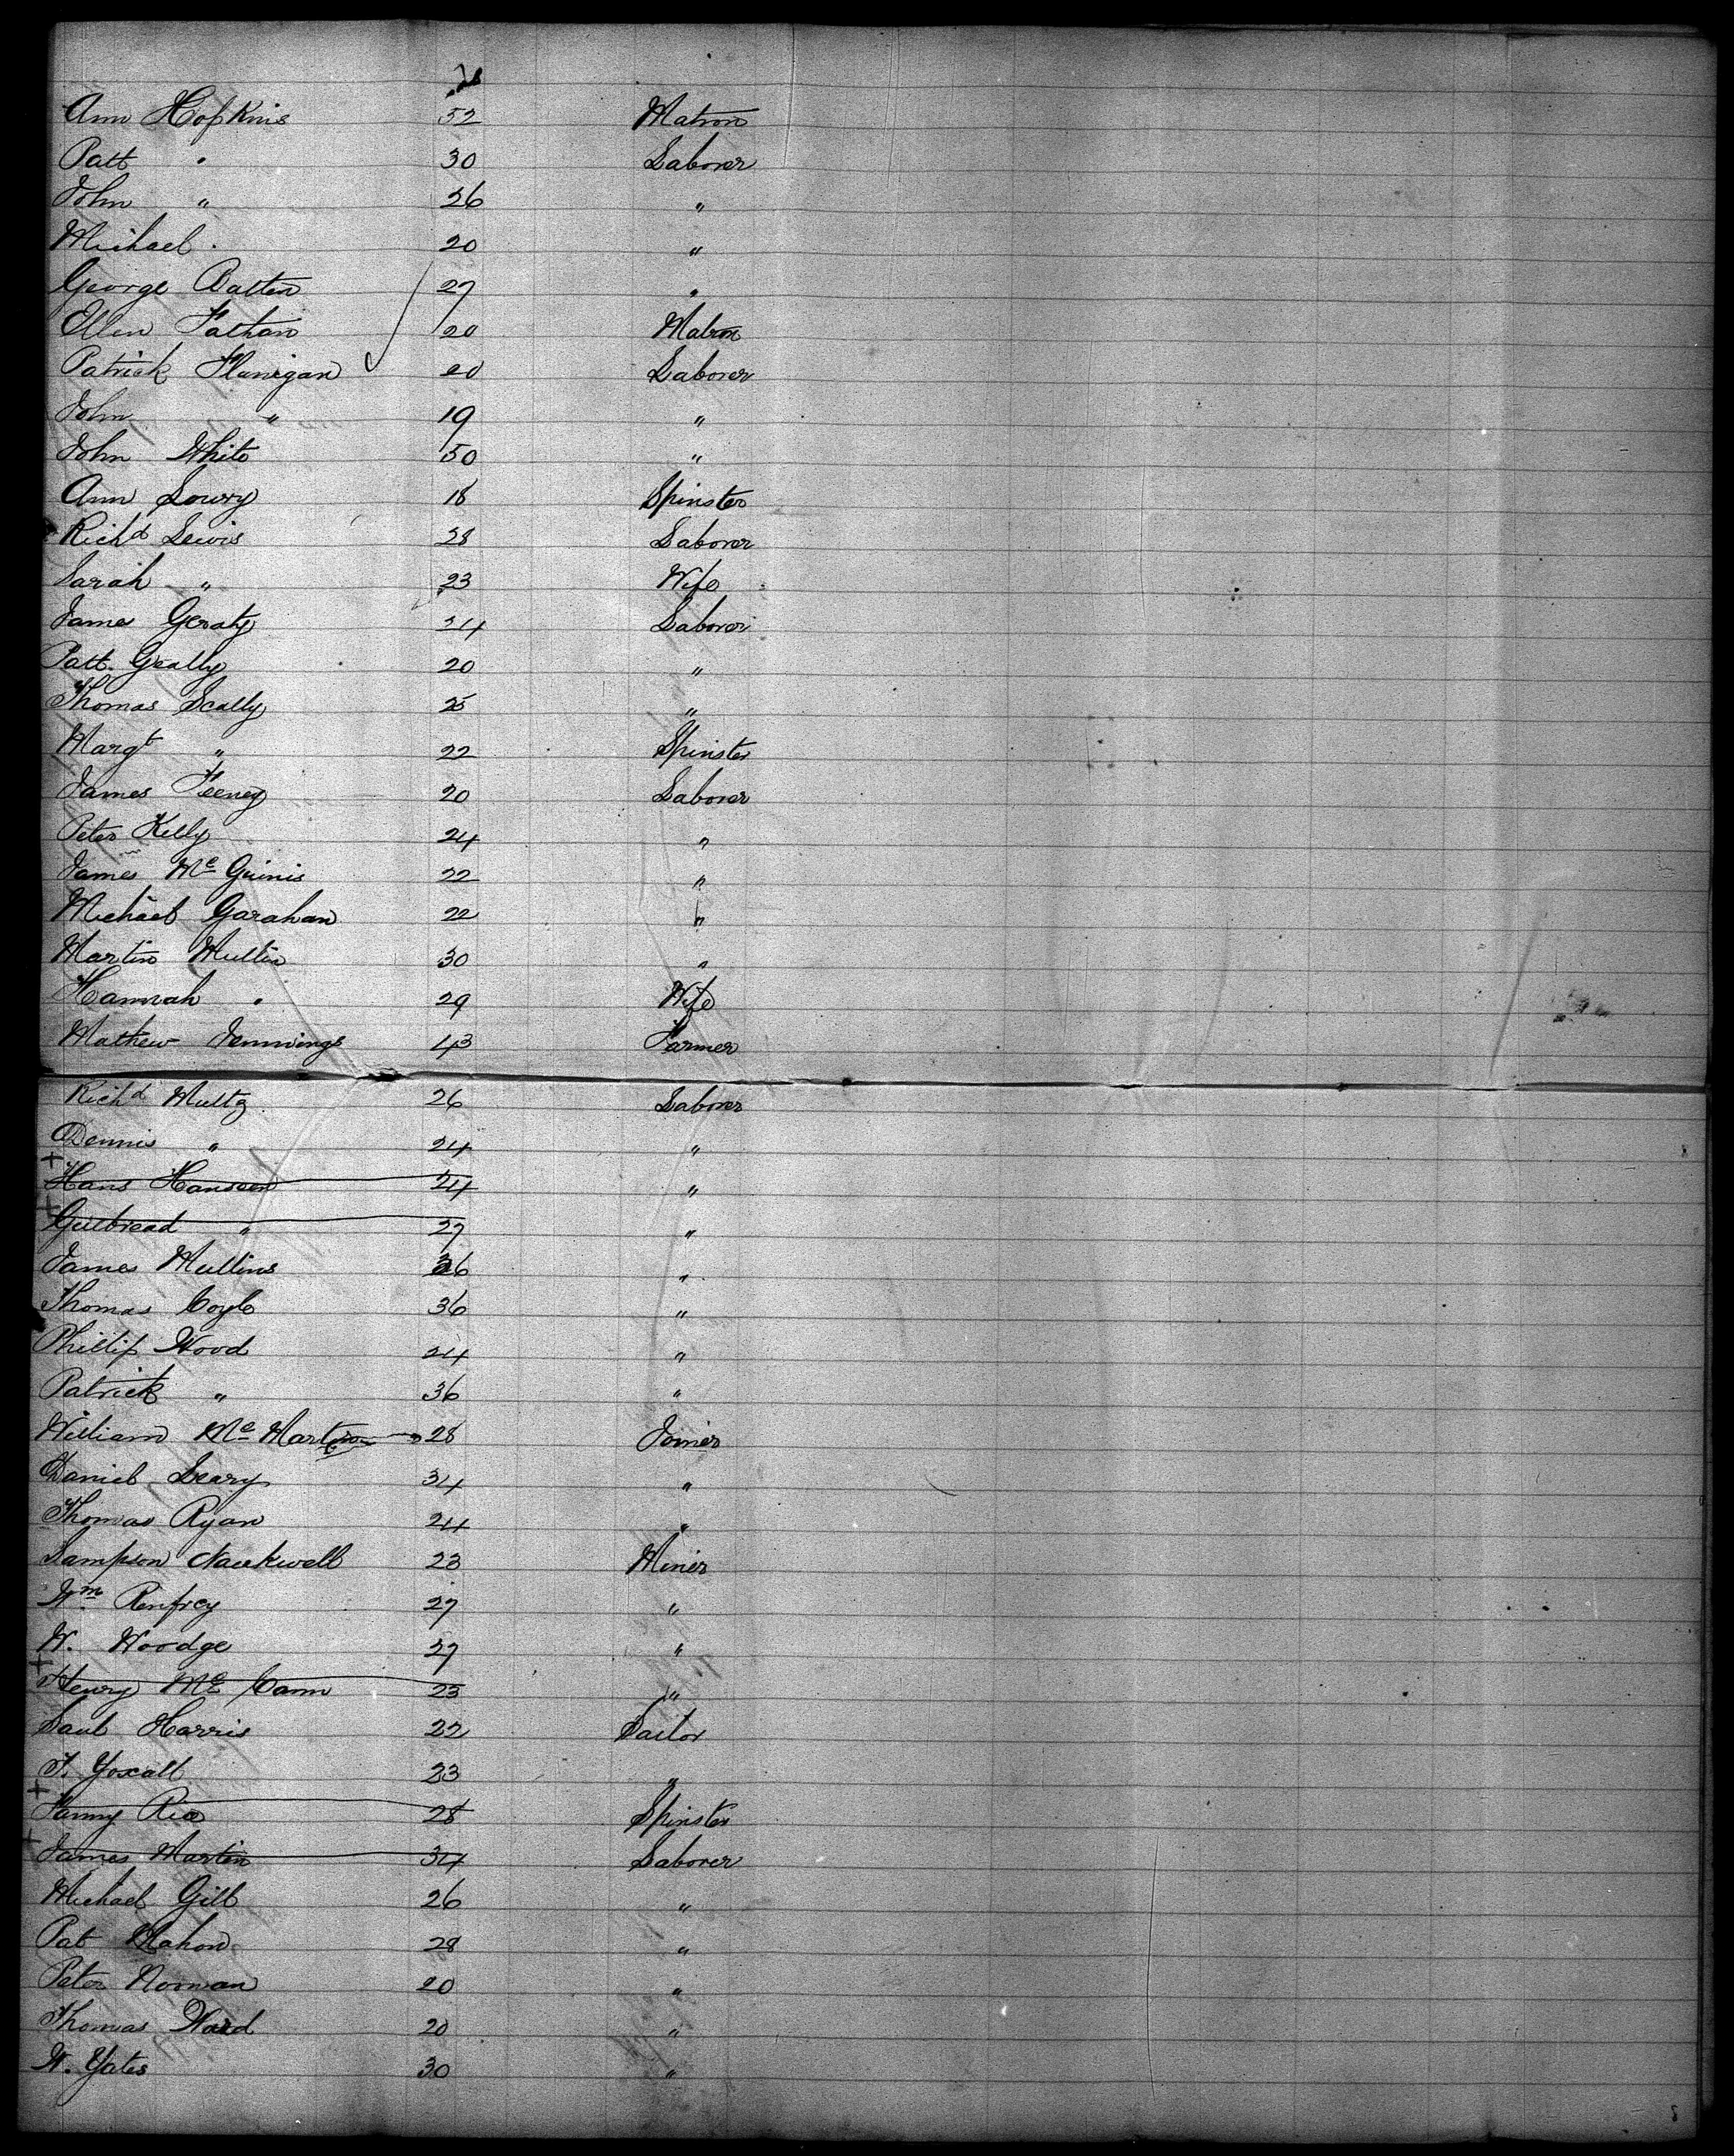 28
Ann Hopkins 52 Matron
Patt " 30 Laborer
John " 26 "
Michael " 20 "
George Batten 27 "
Ellen Fathan 20 Matron
Patrick Flanigan 20 Laborer
John " 19 "
John White 50 "
Ann Lowry 18 Spinster
Richd Lewis 28 Laborer
Sarah " 23 Wife
James Geraty 24 Laborer
Patt. Geally 20 "
Thomas Scally 25 "
Margt " 22 Spinster
James Feeney 20 Laborer
Peter Kelly 24 "
James Mc Guinis 22 "
Michael Garahan 22 "
Martin Mullin 30 "
Hannah " 29 Wife
Mathew Jennings 43 Farmer
Richd Multz 26 Laborer
Dennis " 24 "
+ Hans Hanseen 24 "
+ Gulbread " 27 "
James Mullins 36 "
Thomas Coyle 36 "
Phillip Wood 24 "
Patrick " 36 "
William Mc 28 Joiner
Daniel Leary 34 "
Thomas Ryan 24 "
Sampson 23 Miner
Wm Renfrey 27 "
W. Woodge 27 "
+ Henry Mc Cann 23 "
Saul Harris 22 Sailor
T. Yoxall 23 "
+ Fanny Rice 28 Spinster
+ James Martin 34 Laborer
Michael Gill 26 "
Pat Mahon 28 "
Peter Norman 20 "
Thomas Ward 20 "
W. Yates 30 "